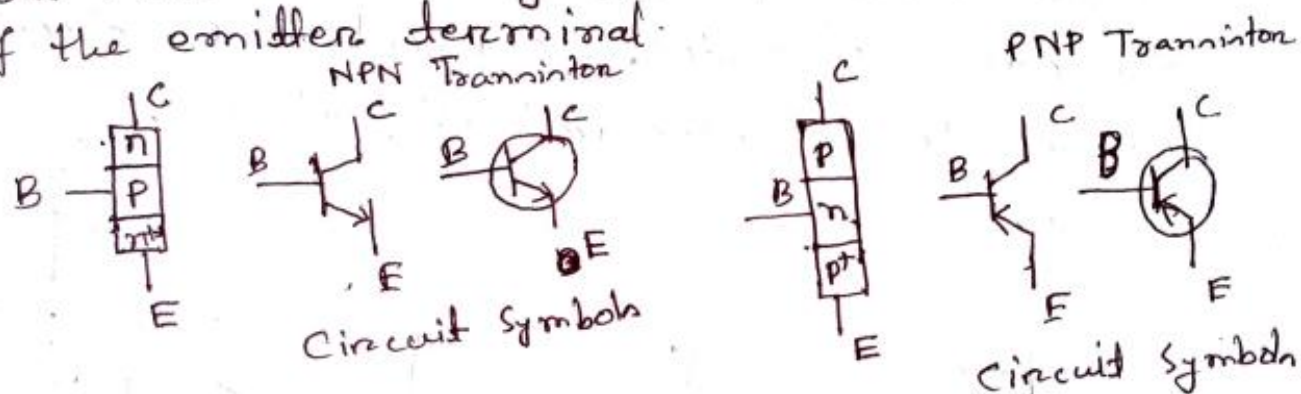 f the emitter terminal.
NPN Transistor
PNP Transistor
C
n
B
P
n+
E
B
C
E
B
C
E
Circuit Symbols
C
P
B
n
P+
E
B
C
E
B
C
E
Circuit Symbols